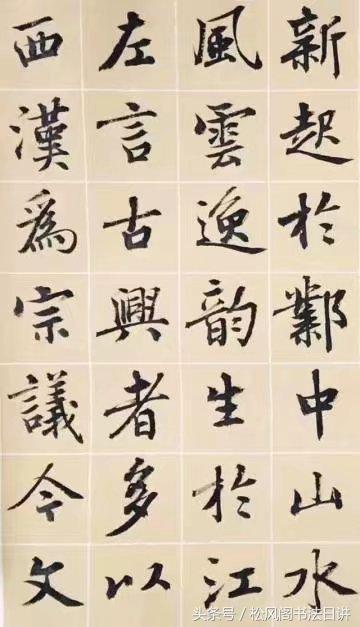 新起於鄴中山水
風雲逸韵生於江
左言古興者多以
西漢爲宗議今文
头条号／松风阁书法日讲